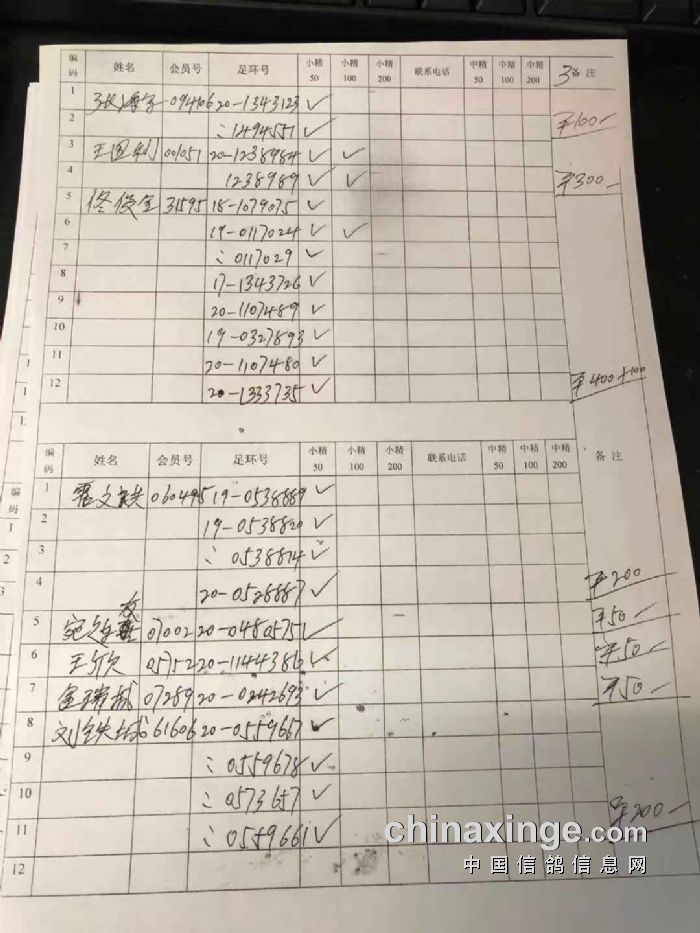 编码 姓名 会员号 足环号 小精50 小精100 小精200 联系电话 中精50 中精100 中精200 3 备注
1 09406 20-1343123 ✓
2 ：1494551 ✓ ¥100-
3 王国利 001051 20-1238984 ✓ ✓
4 1238989 ✓ ✓ ¥300-
5 佟俊全 31595 18-1079075 ✓
6 19-0117024 ✓ ✓
7 ：0117029 ✓
8 17-1343726 ✓
9 20-1107489 ✓
10 19-0327893 ✓
11 20-1107480 ✓
12 20-1333735 ✓ ¥400+100
编码 姓名 会员号 足环号 小精50 小精100 小精200 联系电话 中精50 中精100 中精200 备注
1 060495 19-0538889 ✓
2 19-0538820 ✓
3 ：0538814 ✓
4 20-0528887 ✓ ¥200
5 07002 20-0480575 ✓ ¥50-
6 王欣 05752 20-1144386 ✓ ¥50-
7 07289 20-0242693 ✓ ¥50-
8 刘铁城 61606 20-0559667 ✓
9 ：0559678 ✓
10 ：0573657 ✓
11 ：0559661 ✓ ¥200-
12
编码
1
2
3
chinaxinge.com
中国信鸽信息网